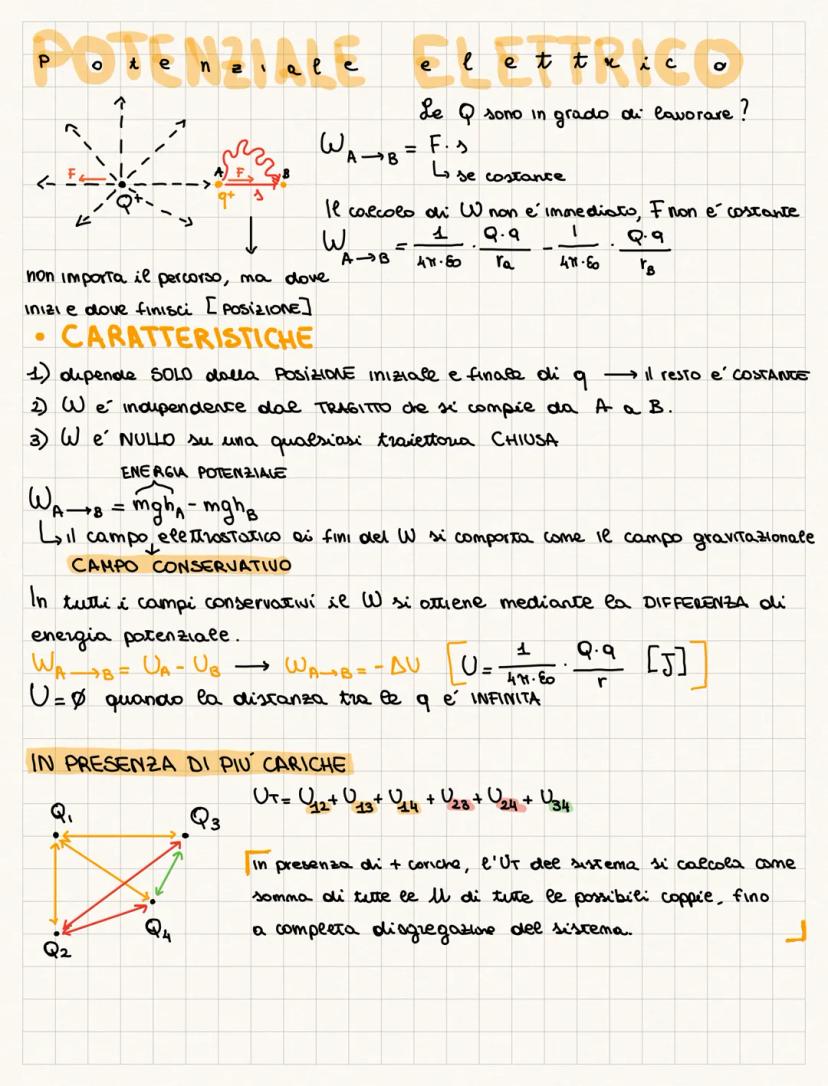 POTENZIALE ELETTRICO
Potenziale elettrico
Le Q sono in grado di lavorare?
W A→B = F · s
↳ se costante
F F A B
Q+ q+ s
Il calcolo di W non e' immediato, F non e' costante
W A→B = 1/4π·ε0 · Q·q/ra - 1/4π·ε0 · Q·q/rB
non importa il percorso, ma dove
inizi e dove finisci [POSIZIONE]
• CARATTERISTICHE
1) dipende SOLO dalla POSIZIONE iniziale e finale di q → il resto e' COSTANTE
2) W e' indipendente dal TRAGITTO che si compie da A a B.
3) W e' NULLO su una qualsiasi traiettoria CHIUSA
ENERGIA POTENZIALE
W A→B = mghA - mghB
↳ il campo elettrostatico ai fini del W si comporta come il campo gravitazionale
CAMPO CONSERVATIVO
In tutti i campi conservativi il W si ottiene mediante la DIFFERENZA di
energia potenziale.
W A→B = UA - UB → W A→B = - ΔU [U = 1/4π·ε0 · Q·q/r [J]]
U = Ø quando la distanza tra le q e' INFINITA
IN PRESENZA DI PIU' CARICHE
UT = U12 + U13 + U14 + U23 + U24 + U34
Q1 Q3
Q2 Q4
In presenza di + cariche, l'UT del sistema si calcola come
somma di tutte le U di tutte le possibili coppie, fino
a completa disgregazione del sistema.